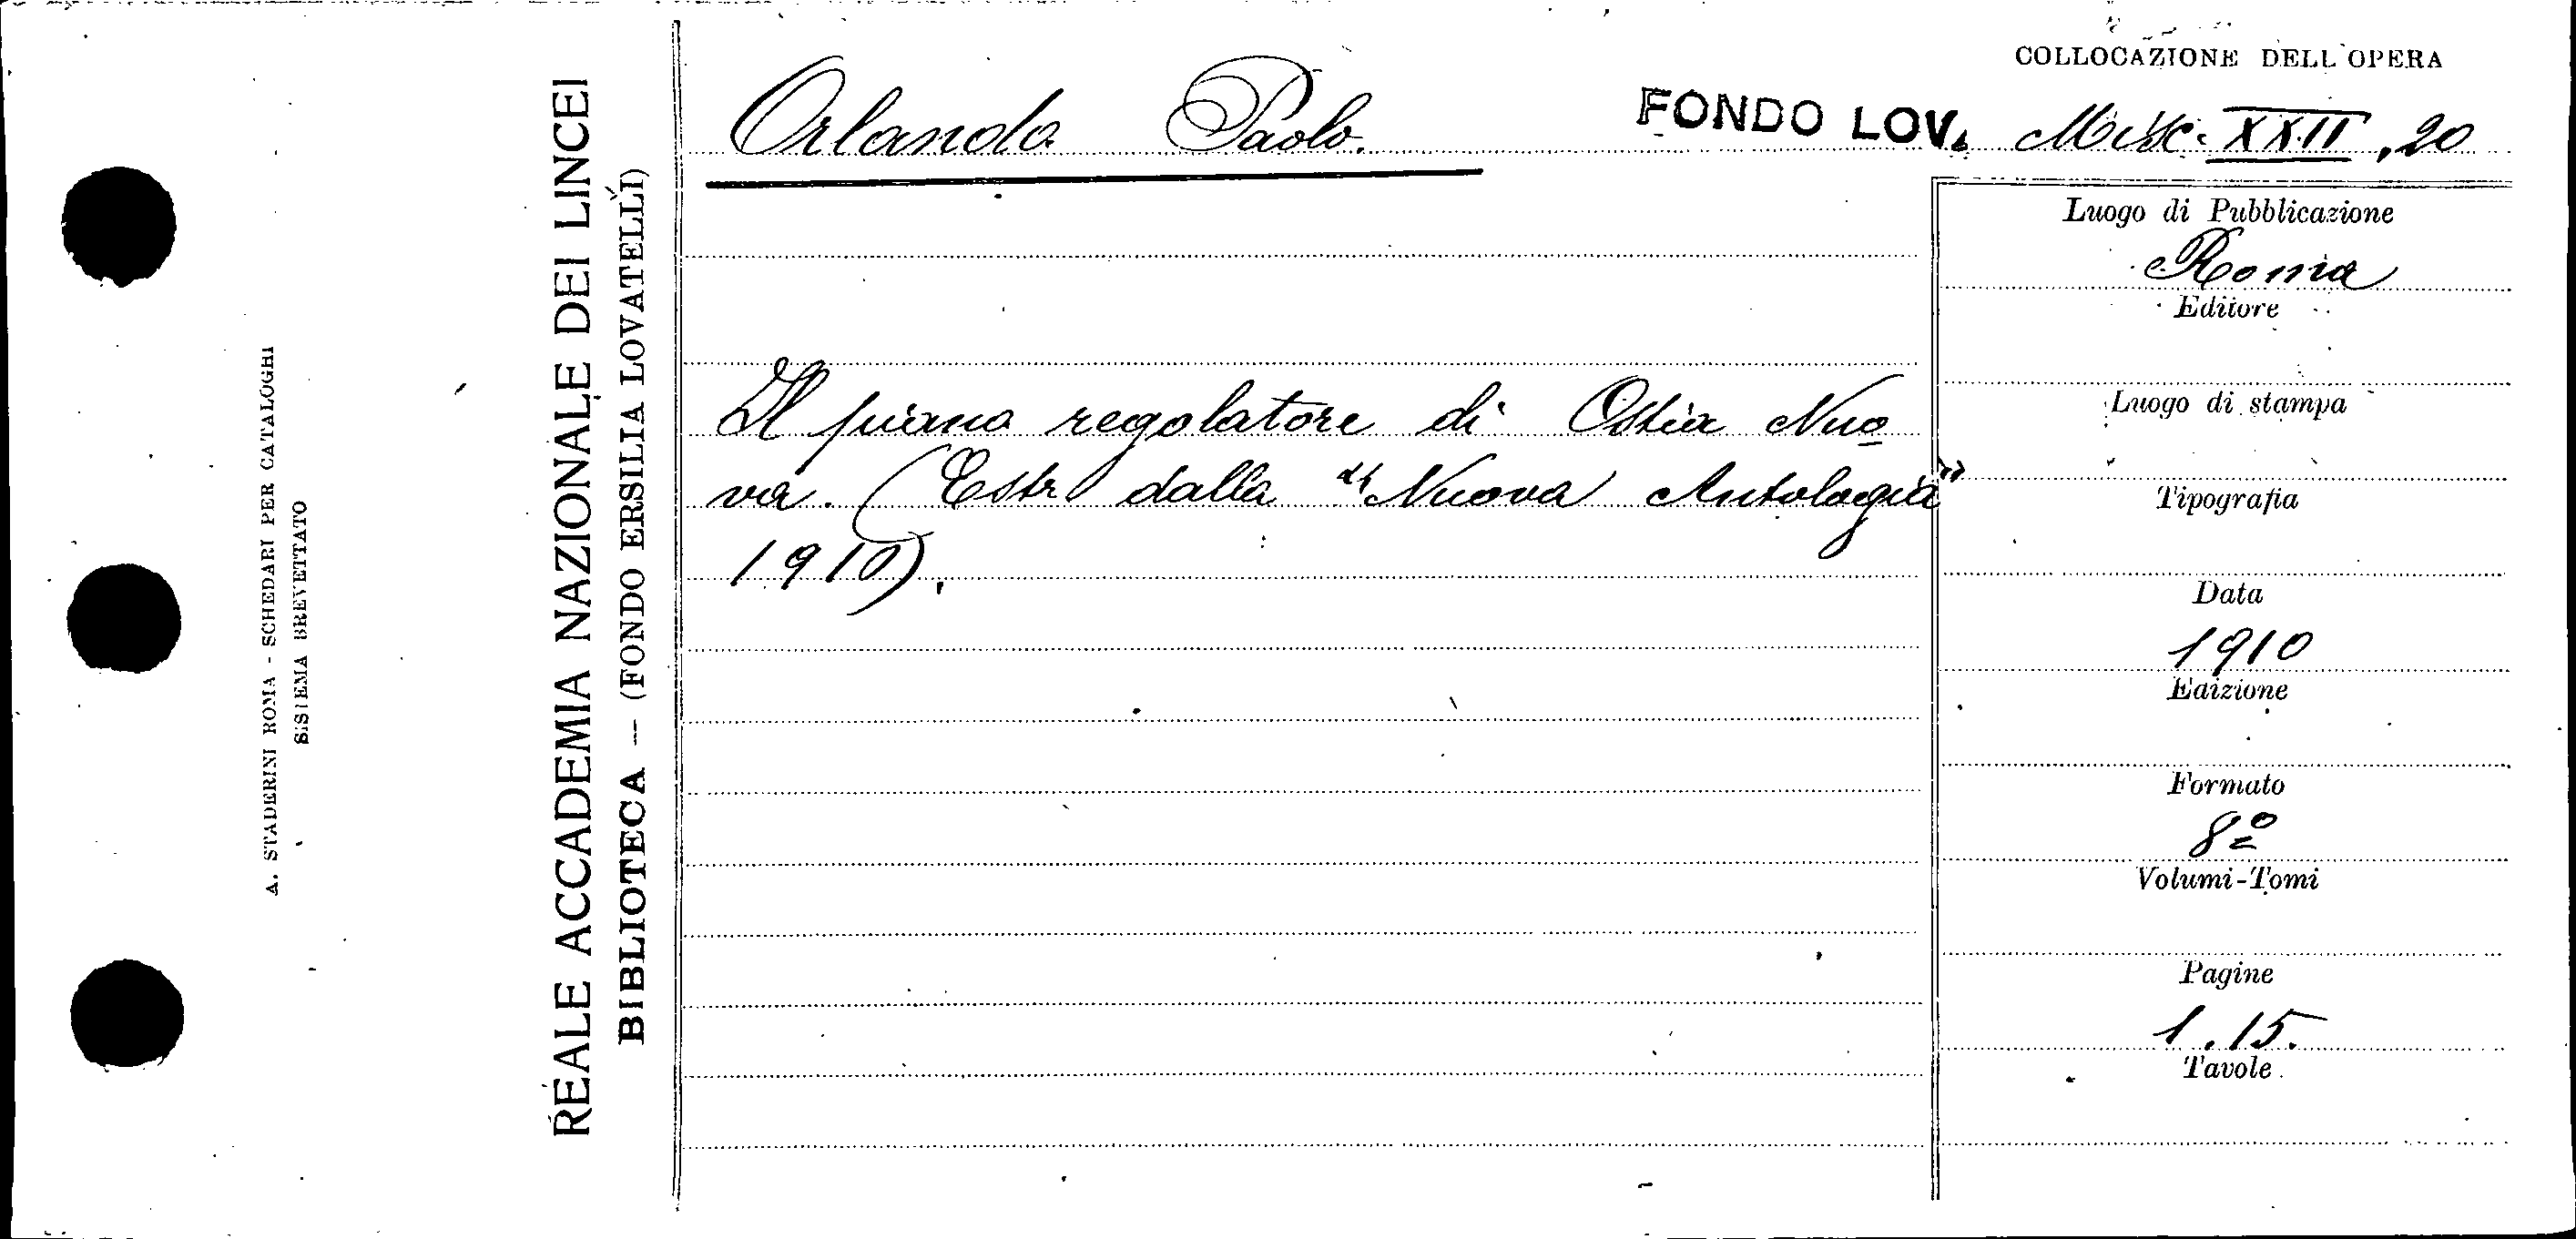 A. STADERINI ROMA - SCHEDARI PER CATALOGHI
SISTEMA BREVETTATO
REALE ACCADEMIA NAZIONALE DEI LINCEI
BIBLIOTECA — (FONDO ERSILIA LOVATELLI)
COLLOCAZIONE DELL'OPERA
Orlando Paolo.
FONDO LOV. Misc. XXII, 20
Il piano regolatore di Ostia Nuo
va. (Estr dalla "Nuova Antologia"
1910).
Luogo di Pubblicazione
Roma
Editore
Luogo di stampa
Tipografia
Data
1910
Edizione
Formato
8º
Volumi-Tomi
Pagine
1.15.
Tavole